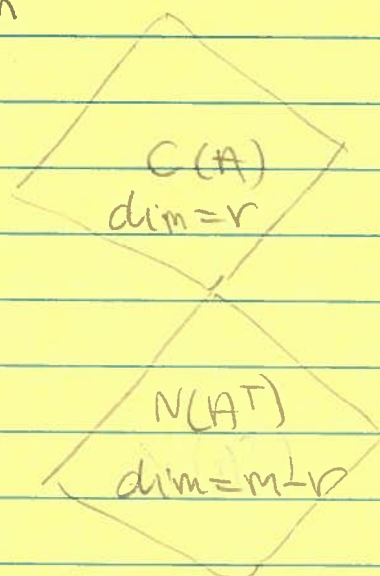 n
C(A)
dim=r
N(Aᵀ)
dim=m-r